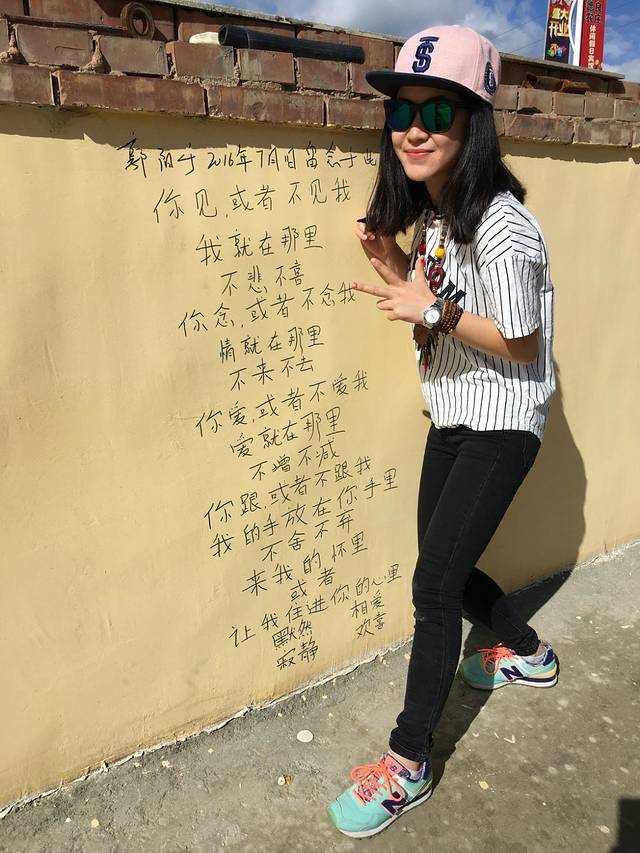 郭阳于2016年7月1日留念于此
你见,或者不见我
我就在那里
不悲不喜
你念,或者不念我
情就在那里
不来不去
你爱,或者不爱我
爱就在那里
不增不减
你跟,或者不跟我
我的手放在你手里
不舍不弃
来我的怀里
或者
让我住进你的心里
默然 相爱
寂静 欢喜
TS
N
N